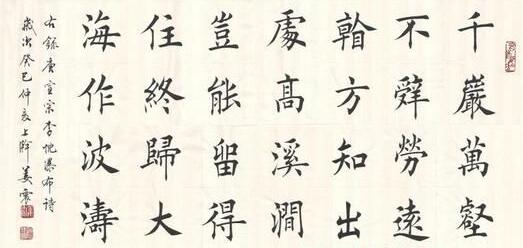 千巖萬壑
不辤勞遠
看方知出
處高溪澗
豈能留得
住終歸大
海作波濤
右錄唐宣宗李忱瀑布詩
歲次癸巳仲夏上澣